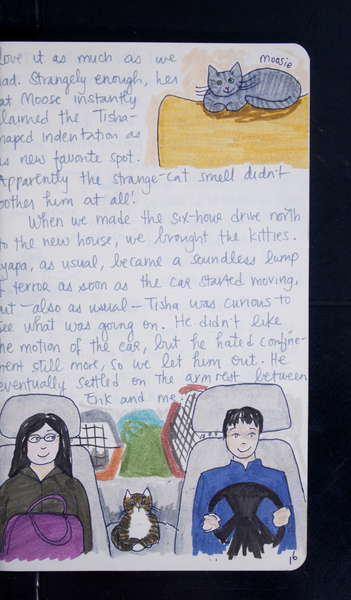 love it as much as we
had. Strangely enough, her
cat Moose instantly
claimed the Tisha-
shaped indentation as
his new favorite spot.
Apparently the strange-cat smell didn't
bother him at all!
When we made the six-hour drive north
to the new house, we brought the kitties.
yapa, as usual, became a soundless lump
of terror as soon as the car started moving,
but – also as usual – Tisha was curious to
see what was going on. He didn't like
the motion of the car, but he hated confine-
ment still more, so we let him out. He
eventually settled on the armrest between
Erik and me.
Moosie
16